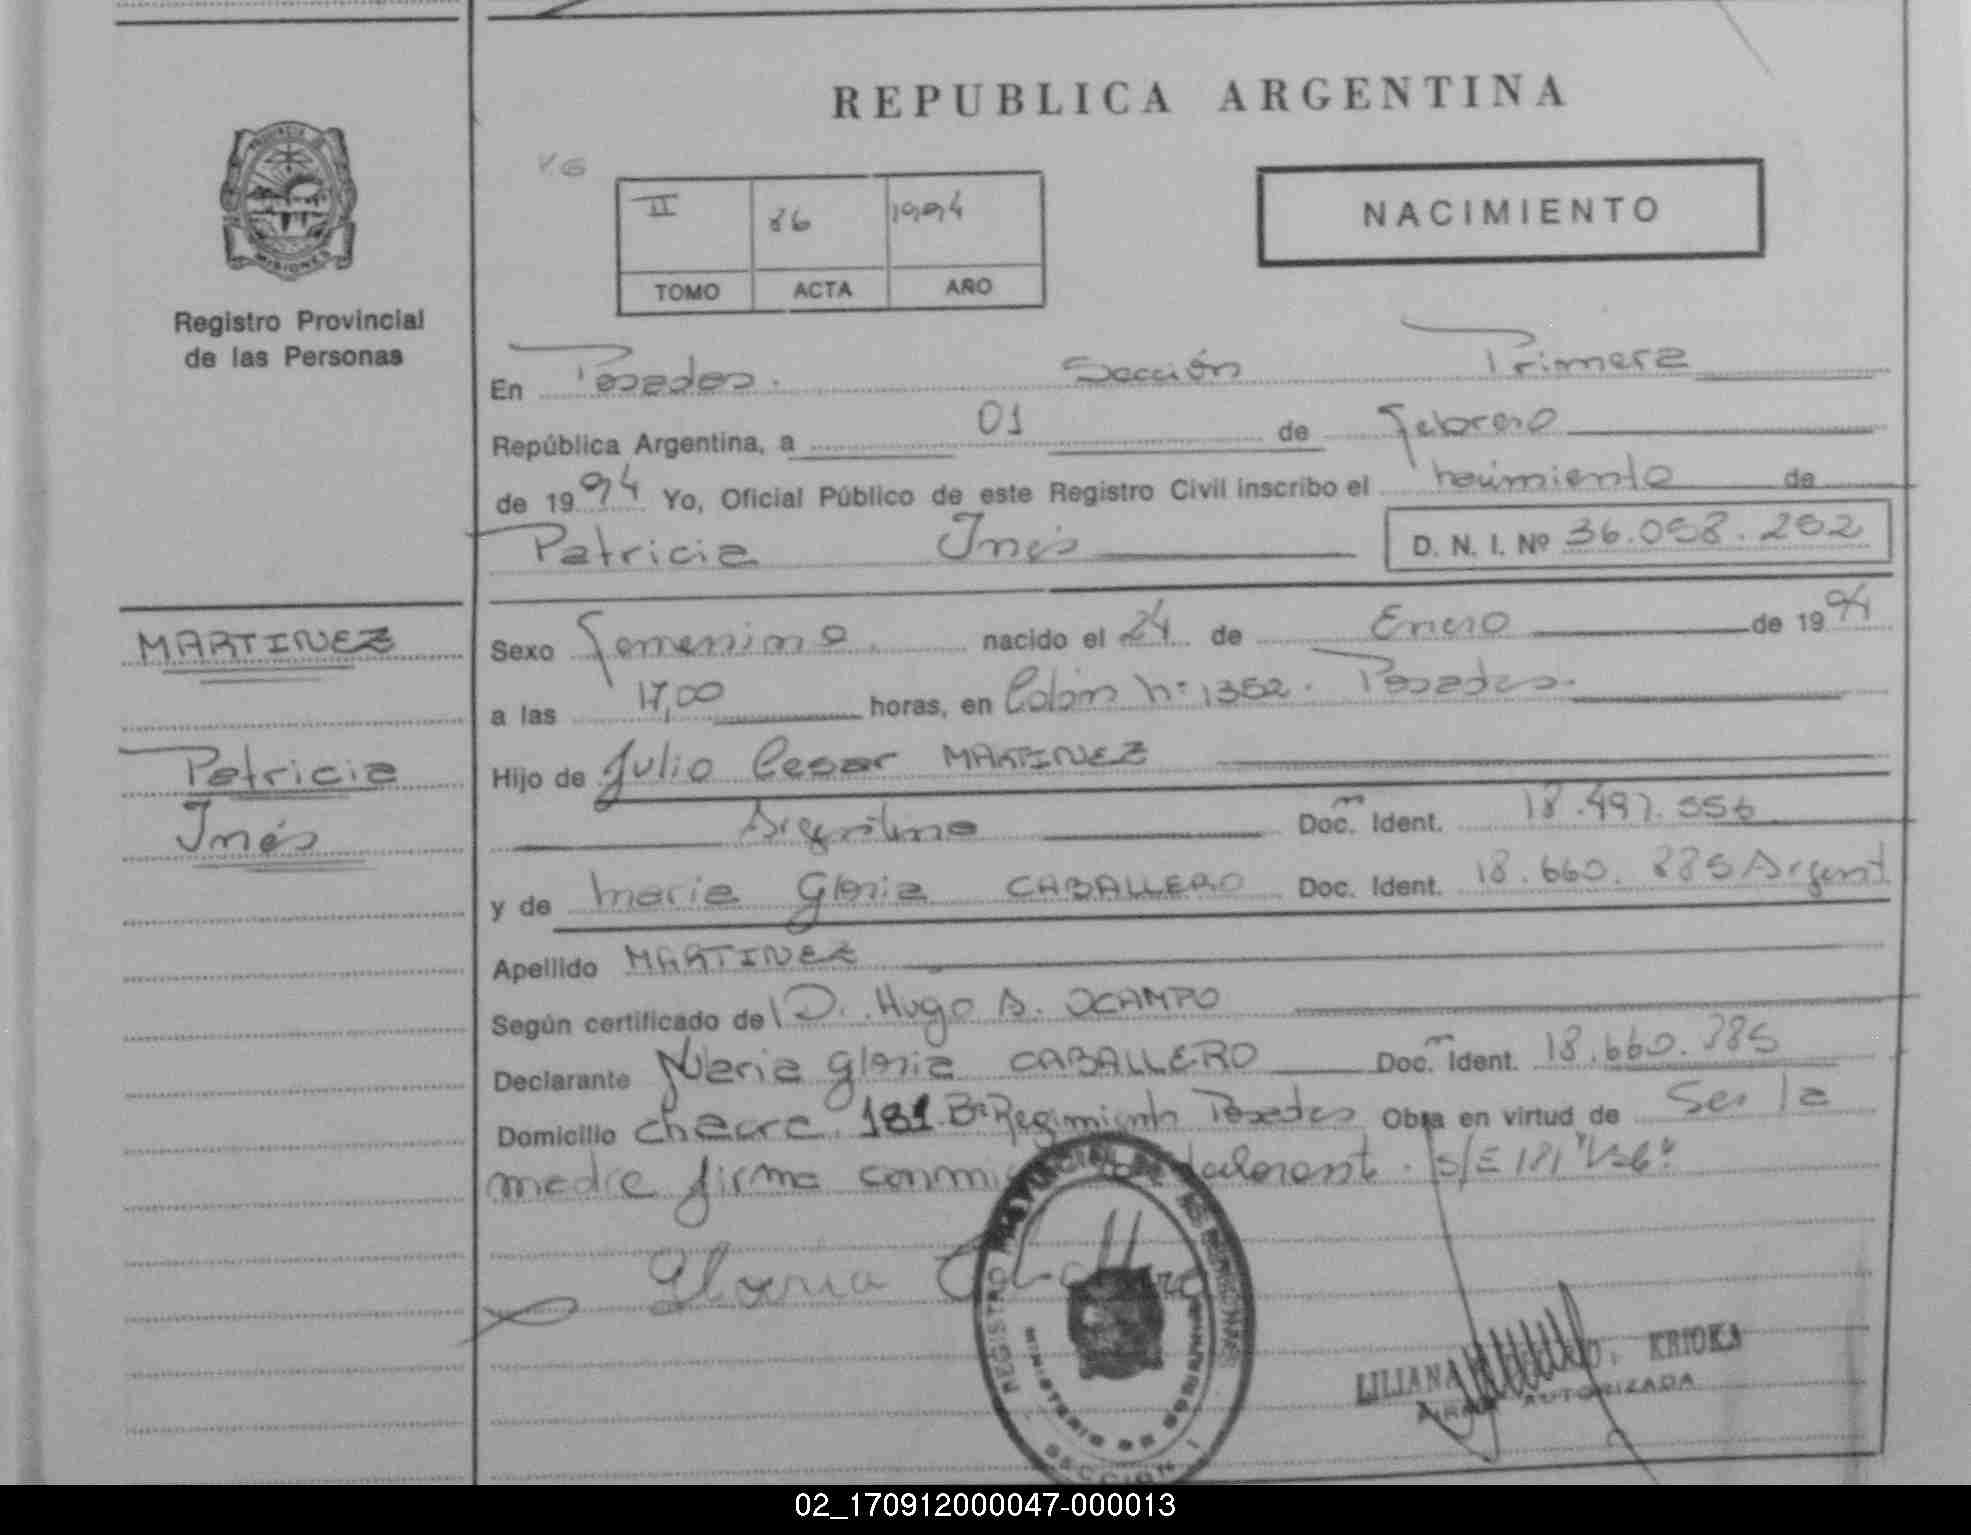 REPUBLICA ARGENTINA
PROVINCIA DE
MISIONES
Registro Provincial
de las Personas
II 86 1994
TOMO ACTA AÑO
NACIMIENTO
En Posadas. Sección Primera
República Argentina, a 01 de Febrero
de 1994 Yo, Oficial Público de este Registro Civil inscribo el nacimiento de
Patricia Inés D. N. I. Nº 36.058.252
MARTINEZ
Patricia
Inés
Sexo Femenino. nacido el 24 de Enero de 1994
a las 17,00 horas, en Colón nº 1352. Posadas.
Hijo de Julio Cesar MARTINEZ
Argentino Doc. Ident. 18.497.556
y de Maria Gloria CABALLERO Doc. Ident. 18.660.885 Argent
Apellido MARTINEZ
Según certificado de D. Hugo A. OCAMPO
Declarante Maria Gloria CABALLERO Doc. Ident. 18.660.885
Domicilio chacra 181 Bº Regimiento Posadas Obra en virtud de Ser la
madre firma conmigo S/E 181 "Vale"
Gloria
REGISTRO PROVINCIAL DE LAS PERSONAS
MINISTERIO DE GOBIERNO
SECCION 1
LILIANA KRIOKA
FIRMA AUTORIZADA
02_170912000047-000013